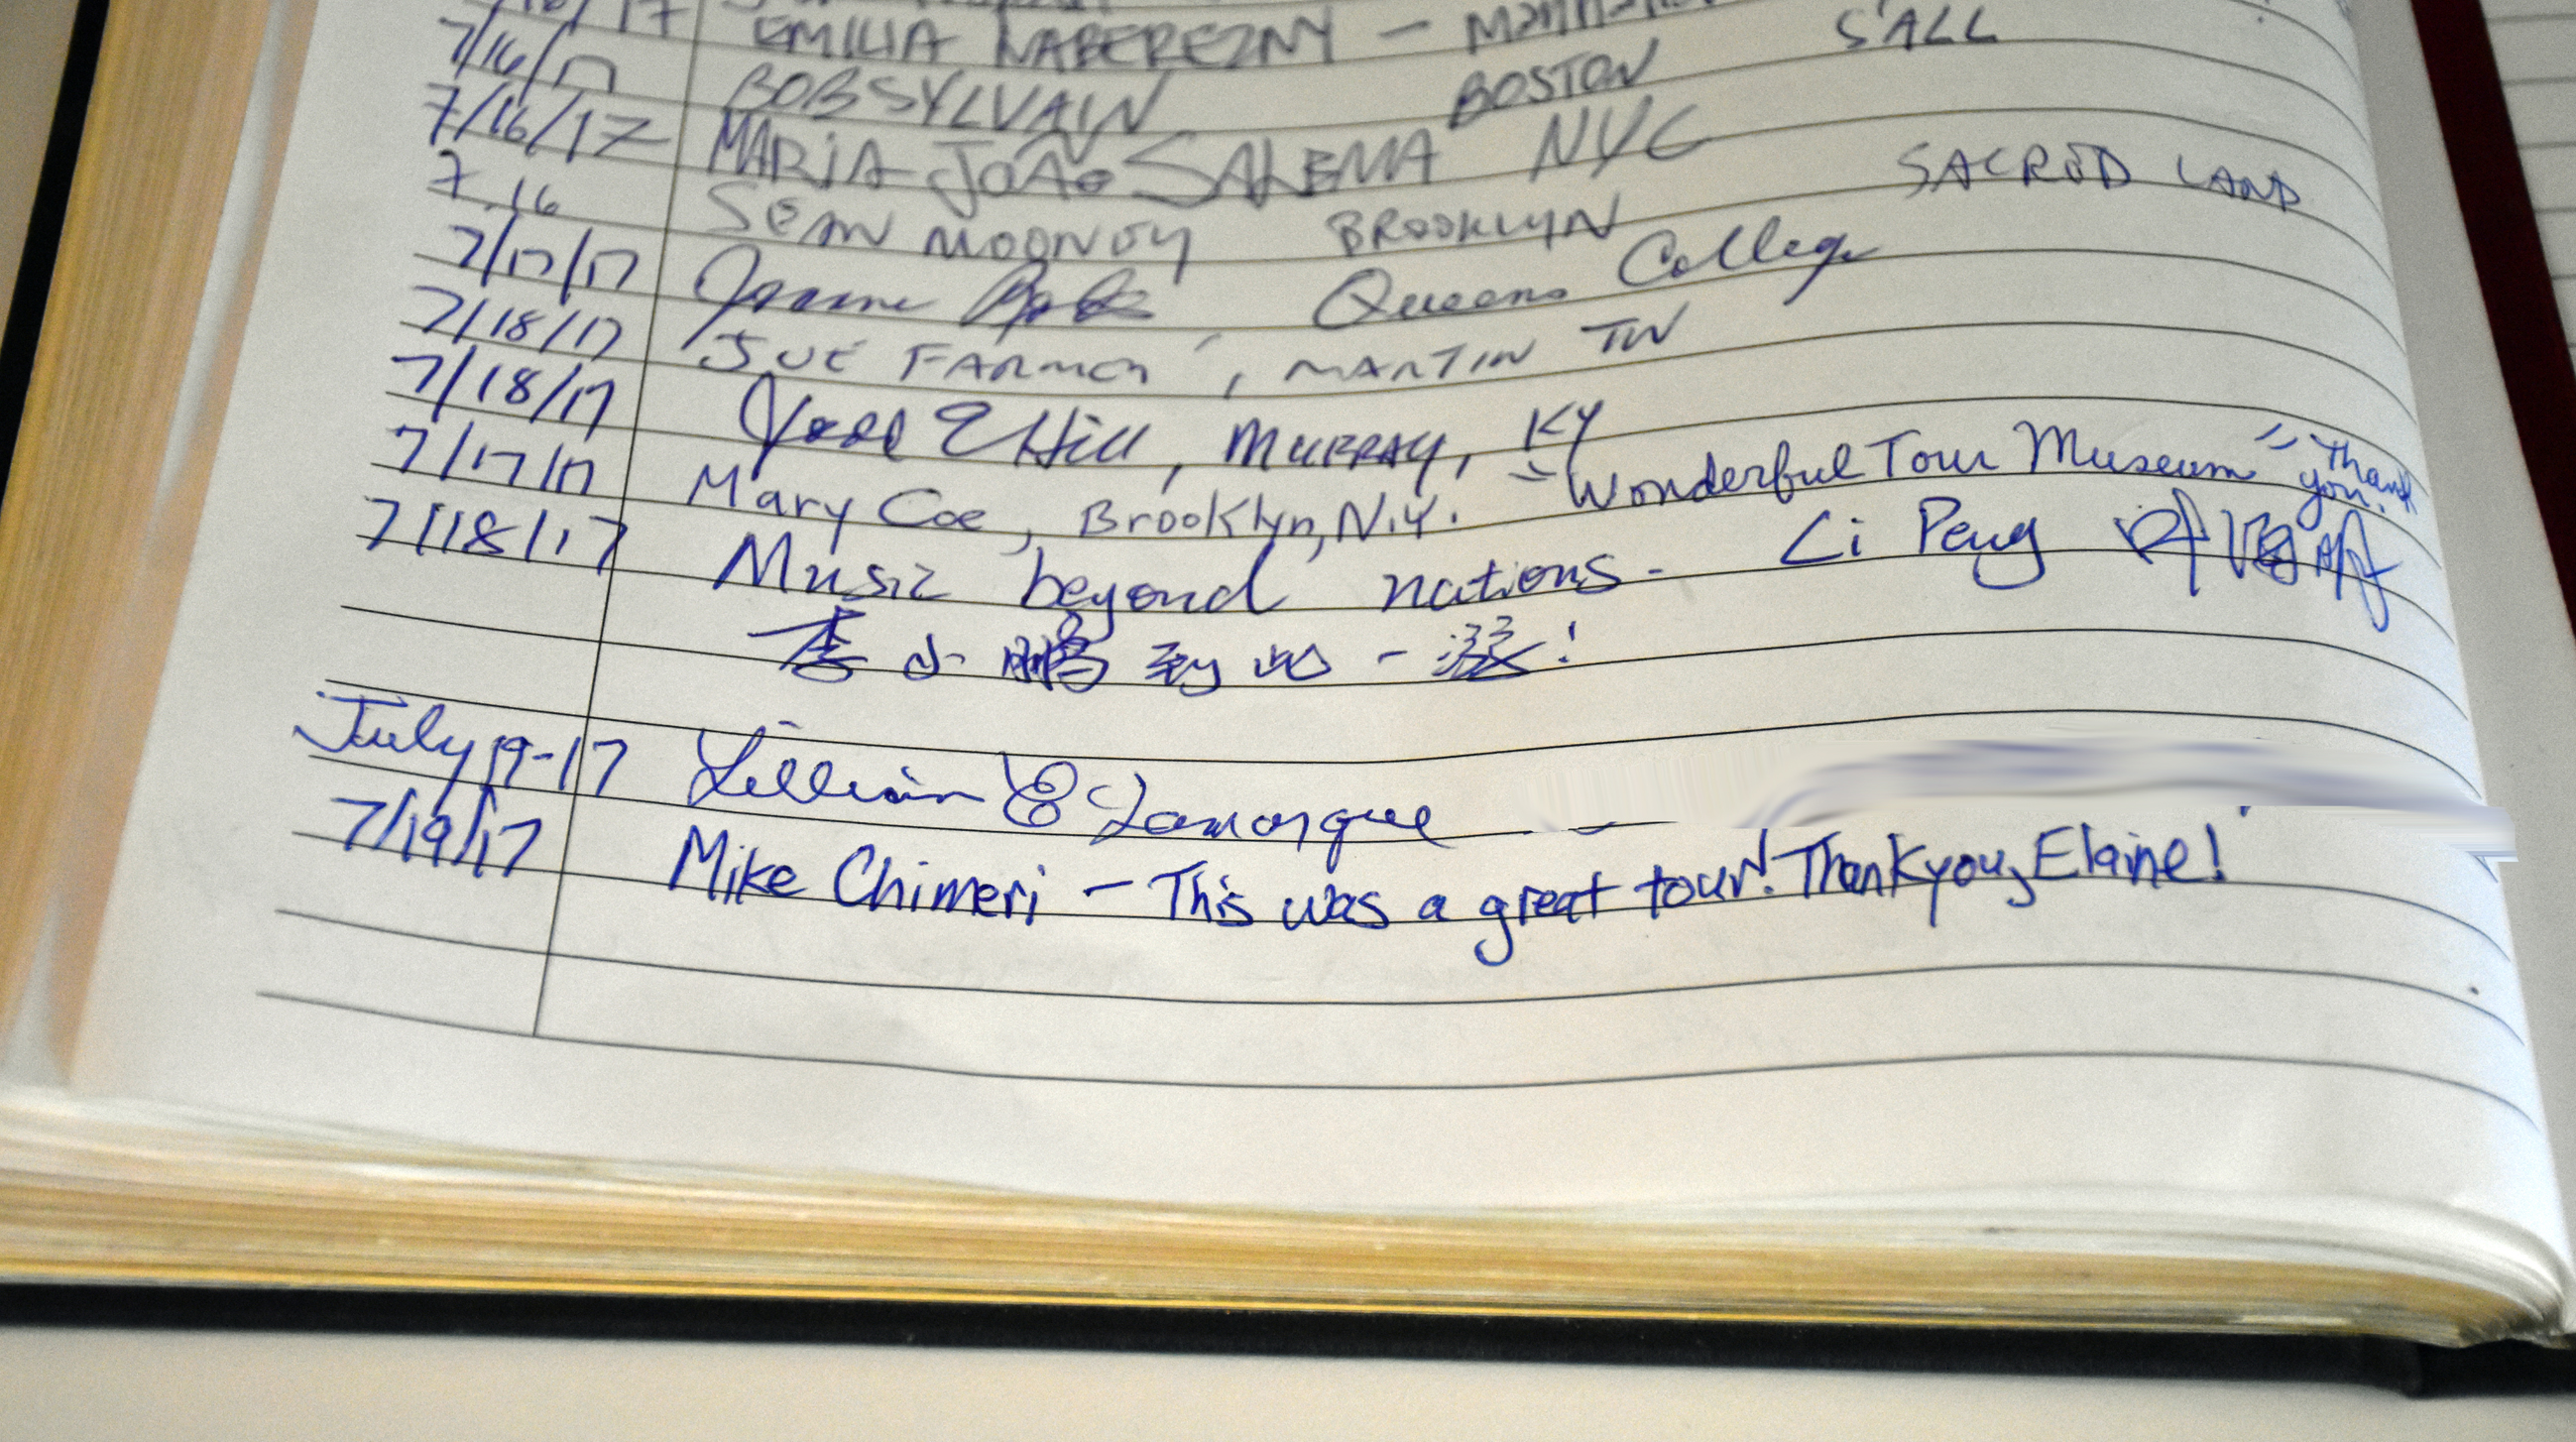 /17
7/16/17 EMILIA NABEREZNY - S'ALL
7/16/17 BOB SYLVAIN BOSTON
7.16 MARIA JOÃO SALEMA NYC
7/17/17 SEAN MOONEY BROOKLYN SACRED LAND
7/18/17 Queens College
7/18/17 JOE FARMER, MARTIN TN
7/17/17 Hill, MURRAY, KY
7/18/17 Mary Coe, Brooklyn, N.Y. - "Wonderful Tour Museum" Thank you!
Music beyond nations. Li Peng 中国
李小鹏到此一游!
July 19-17 Lillian E Lamarque
7/19/17 Mike Chimeri - This was a great tour! Thank you, Elaine!